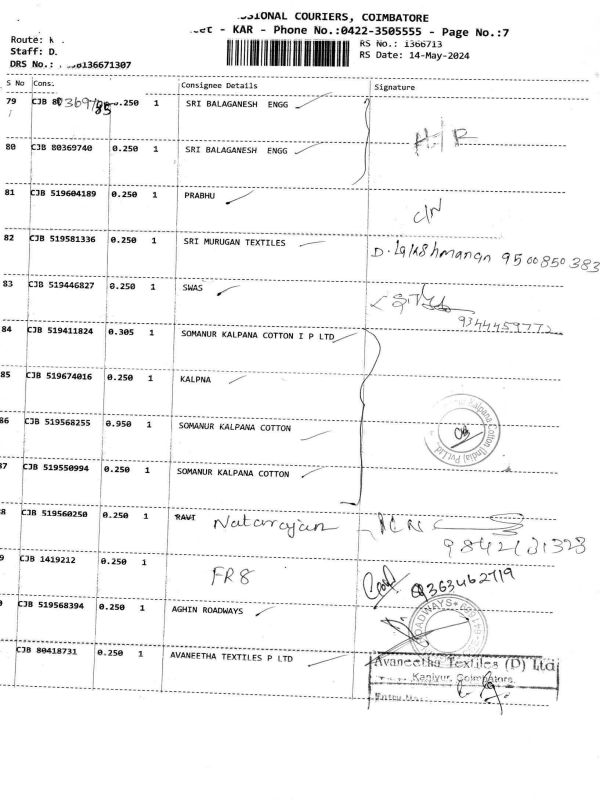 SIONAL COURIERS, COIMBATORE
- KAR - Phone No.:0422-3505555 - Page No.:7
Route:
RS No.: 1366713
Staff: D.
RS Date: 14-May-2024
DRS No.: 136671307
S No Cons. Consignee Details Signature
79 CJB 0.250 1 SRI BALAGANESH ENGG
80 CJB 80369740 0.250 1 SRI BALAGANESH ENGG
81 CJB 519604189 0.250 1 PRABHU
C/N
82 CJB 519581336 0.250 1 SRI MURUGAN TEXTILES
D. Lakshmanan 9500850383
83 CJB 519446827 0.250 1 SWAS
9344459772
84 CJB 519411824 0.305 1 SOMANUR KALPANA COTTON I P LTD
85 CJB 519674016 0.250 1 KALPNA
86 CJB 519568255 0.950 1 SOMANUR KALPANA COTTON
Kalpana Cotton (India) Pvt.Ltd
87 CJB 519550994 0.250 1 SOMANUR KALPANA COTTON
8 CJB 519560250 0.250 1 RAVI Natarajan
9842131328
9 CJB 1419212 0.250 1 FR8
9363462719
CJB 519568394 0.250 1 AGHIN ROADWAYS
ROADWAYS
CJB 80418731 0.250 1 AVANEETHA TEXTILES P LTD
Avaneetha Textiles (P) Ltd
Kaniyur, Coimbatore.
Entry No.